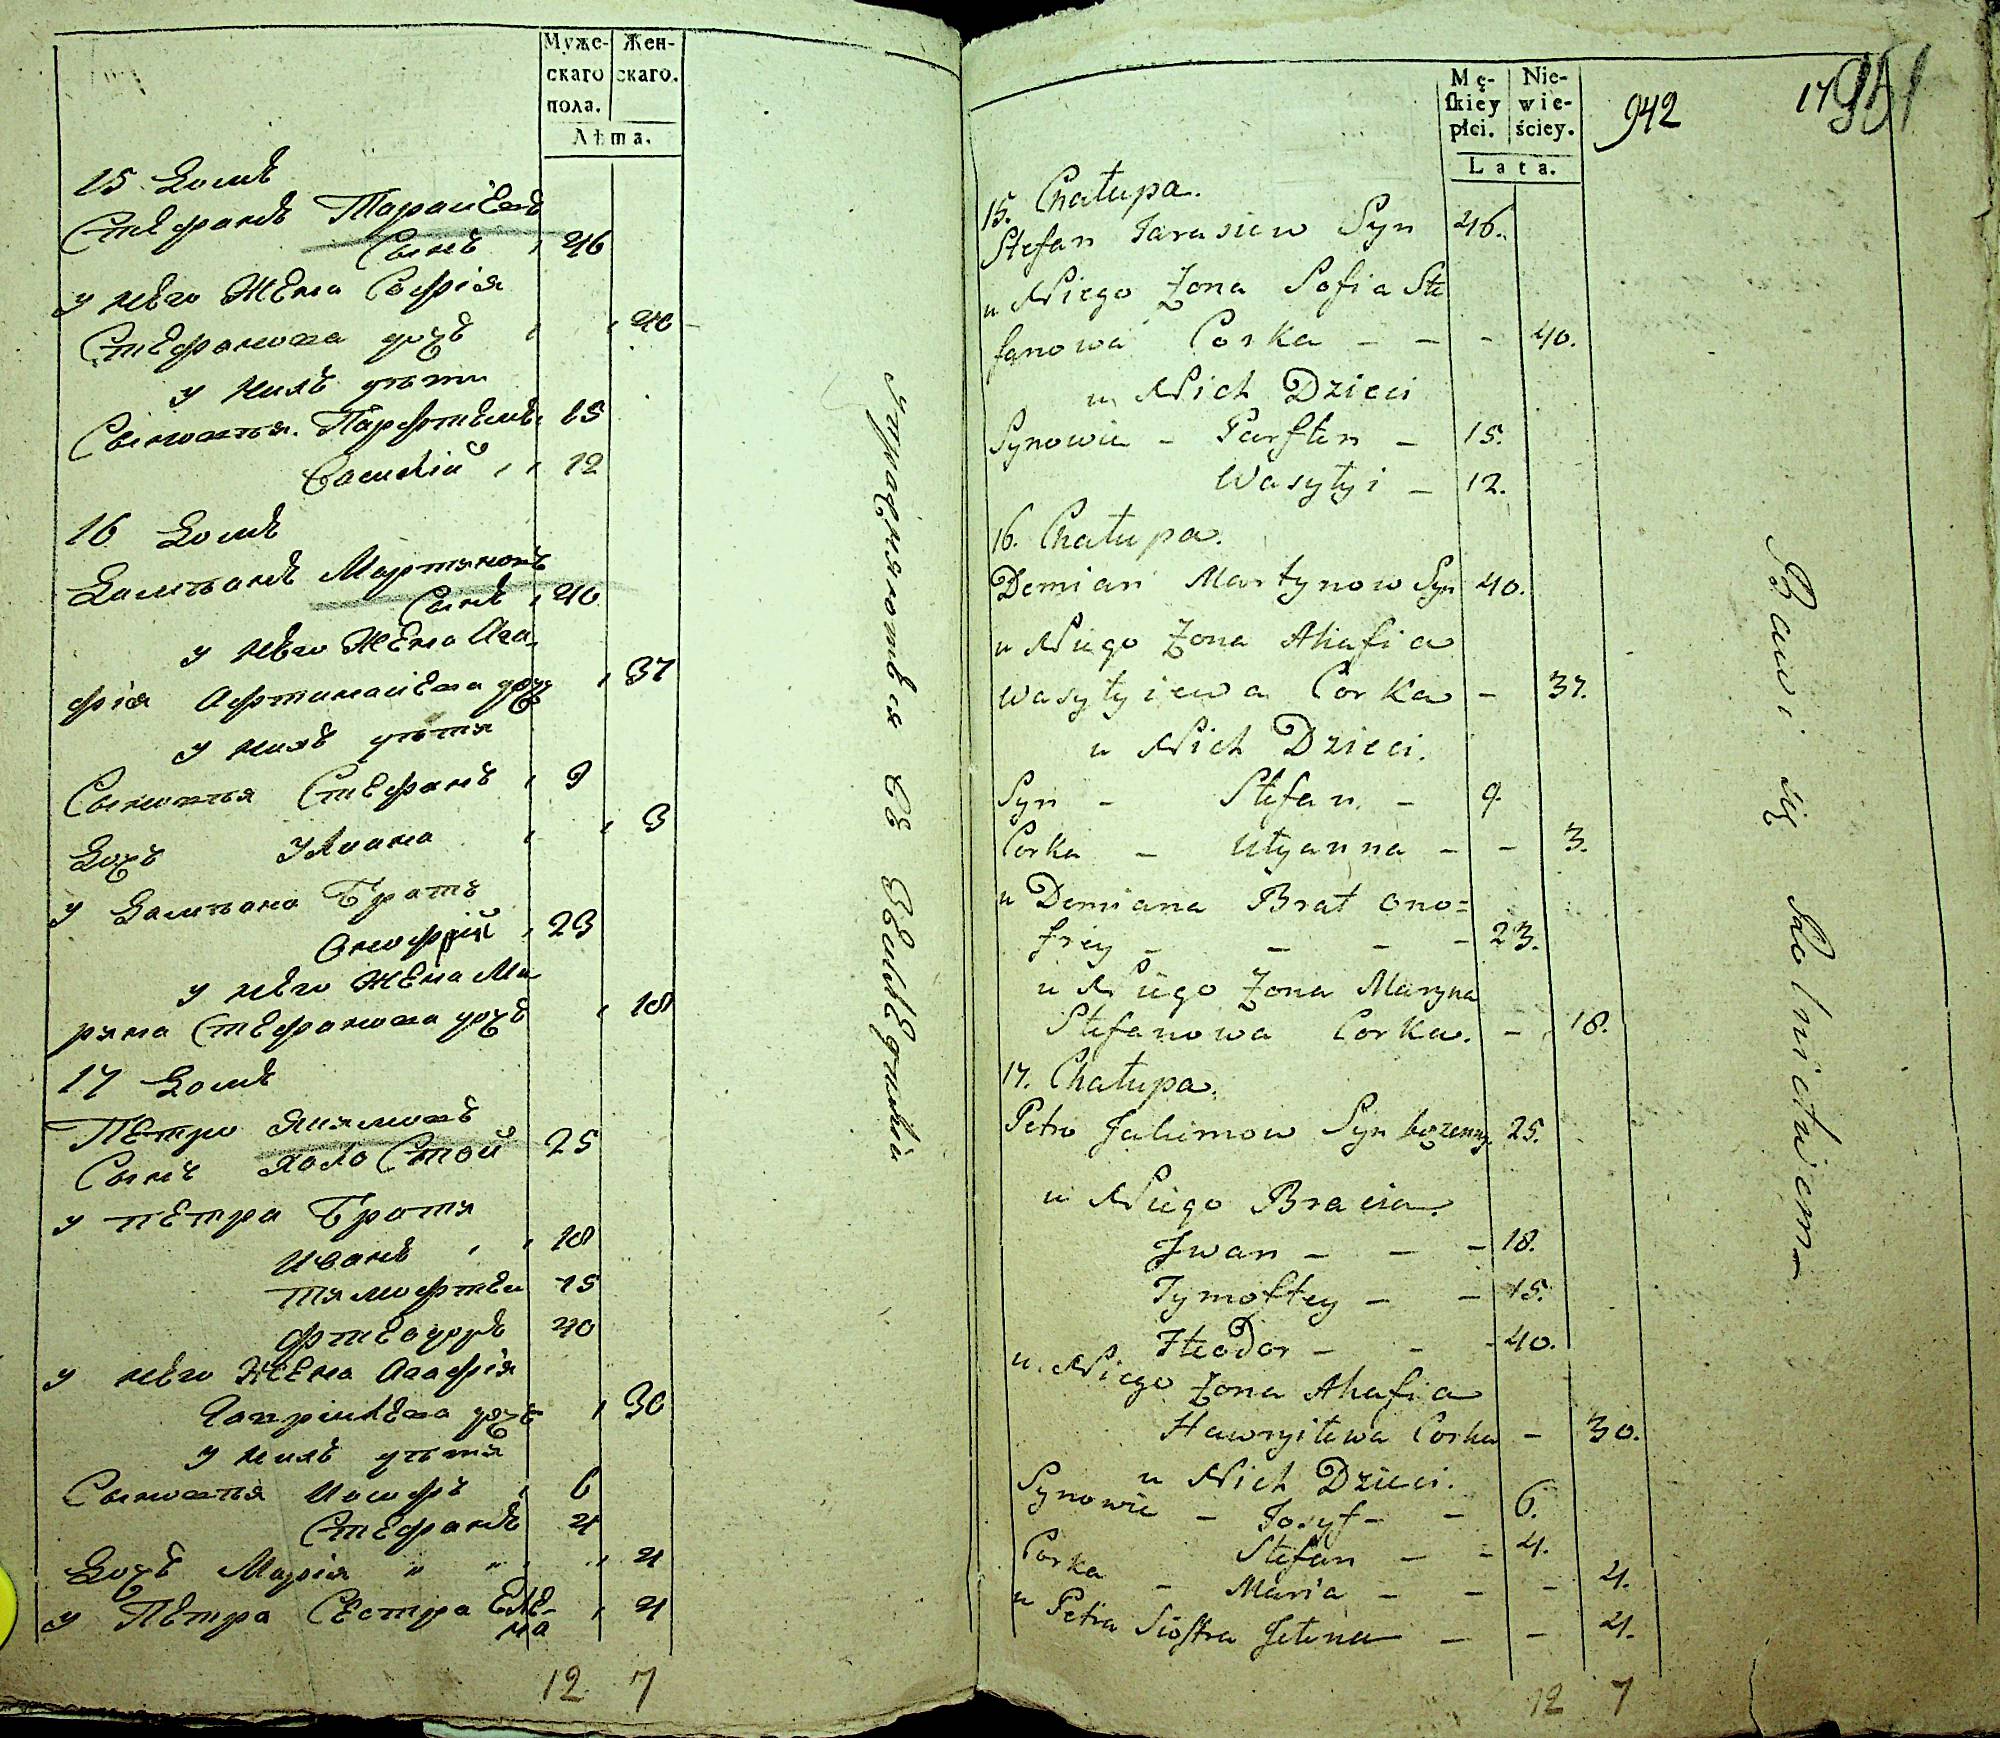 Муже-
скаго
пола.
Жен-
скаго.
Лѣта.
15 Домъ
Стефанъ Тарасіевъ
Сынъ 46
у него Жена Софія
Стефанова дочь 40
у нихъ дѣти
Сыновья Парфтенъ 15
Василій 12
16 Домъ
Дамьянъ Мартиновъ
Сынъ 40
у него Жена Ага-
фія Афтанасіева дочь 37
у нихъ дѣти
Сыновья Стефанъ 9
Дочь Ульяна 3
у Дамьяна Братъ
Онофрій 23
у него Жена Ма-
рина Стефанова дочь 18
17 Домъ
Петро Якимовъ
Сынъ холостой 25
у Петра Братья
Иванъ 18
Тимофтей 15
Фтеодоръ 40
у него Жена Агафія
Гаврилева дочь 30
у нихъ дѣти
Сыновья Иосифъ 6
Стефанъ 4
Дочь Марія 4
у Петра Сестра Еле-
на 4
12 7
Упражняются въ Земледеліи
Mę-
skiey
płci.
Nie-
wie-
ściey.
Lata.
942
15. Chałupa.
Stefan Tarasiew Syn 46.
u Niego Żona Sofia Ste
fanowa Corka - - - 40.
u Nich Dzieci
Synowie - Parften - 15.
Wasyłyi - 12.
16. Chałupa.
Demian Martynow Syn 40.
u Niego Żona Ahafia
Wasyłyiewa Corka - 37.
u Nich Dzieci.
Syn - Stefan - 9.
Corka - Ulyanna - - 3.
u Demiana Brat Ono=
frey - - - - 23.
u Niego Żona Maryna
Stefanowa Corka. - 18.
17. Chałupa.
Petro Jakimow Syn bezenny 25.
u Niego Bracia
Jwan - - - 18.
Tymoftey - - 15.
Fteodor - - - 40.
u Niego Żona Ahafia
Hawryłewa Corka - 30.
u Nich Dzieci.
Synowie - Josyf - - 6.
Stefan - - 4.
Corka - Maria - - - 4.
u Petra Siostra Jelena - - 4.
12 7
Bawi się Rolnictwem